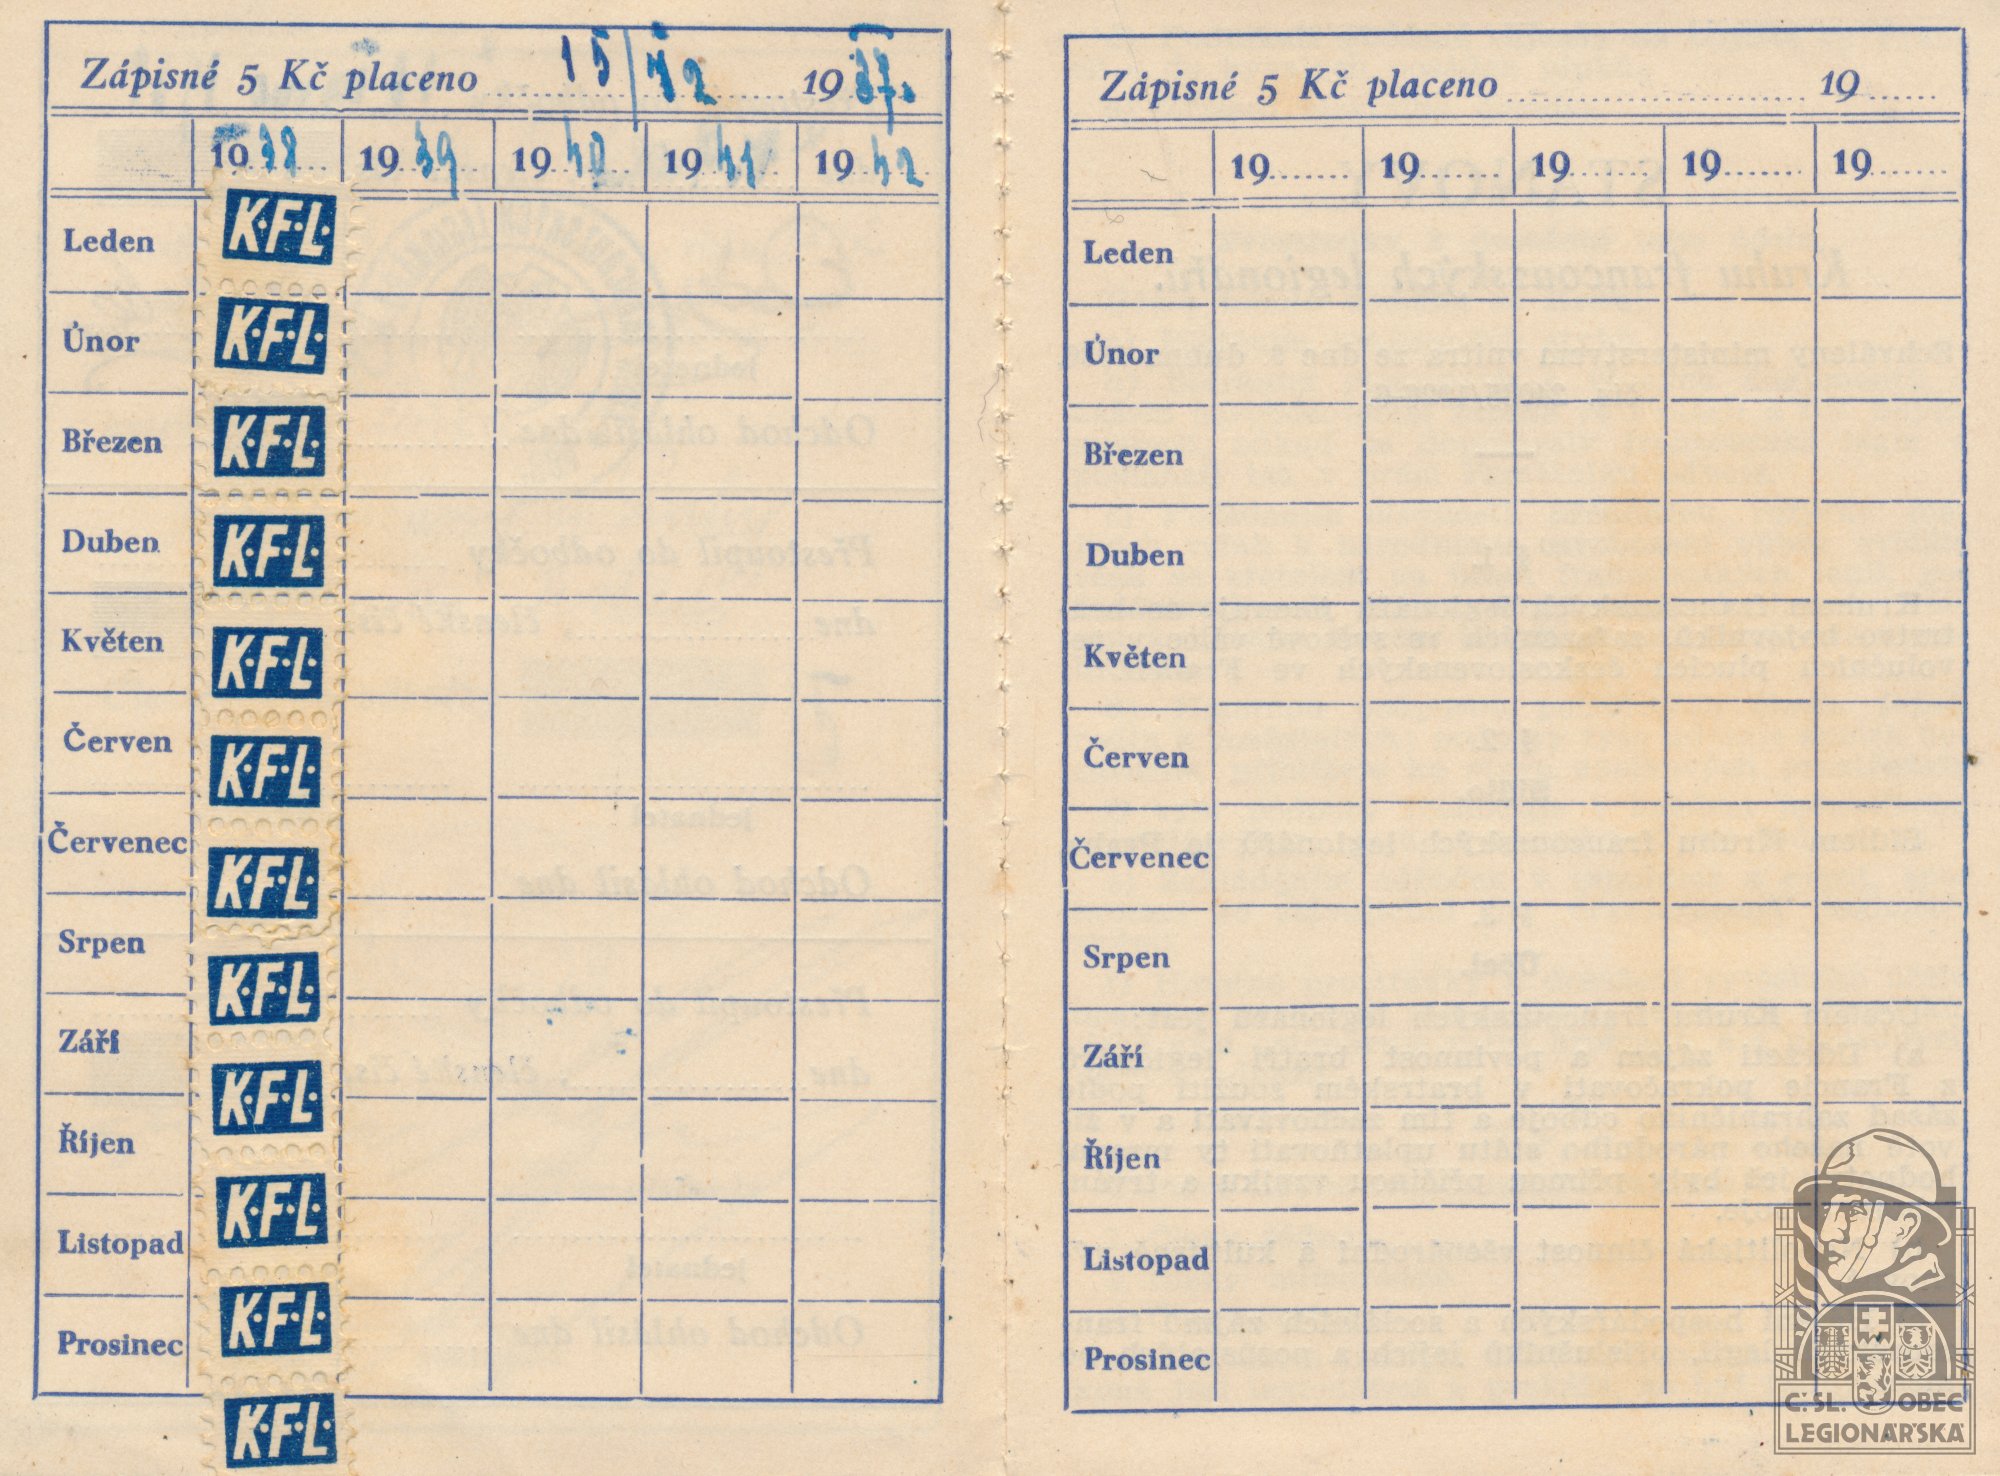 Zápisné 5 Kč placeno 15/12 1937.
1938 1939 1940 1941 1942
Leden K·F·L·
Únor K·F·L·
Březen K·F·L·
Duben K·F·L·
Květen K·F·L·
Červen K·F·L·
Červenec K·F·L·
Srpen K·F·L·
Září K·F·L·
Říjen K·F·L·
Listopad K·F·L·
Prosinec K·F·L·
Zápisné 5 Kč placeno 19
19 19 19 19 19
Leden
Únor
Březen
Duben
Květen
Červen
Červenec
Srpen
Září
Říjen
Listopad
Prosinec
Č. SL. OBEC
LEGIONÁŘSKÁ